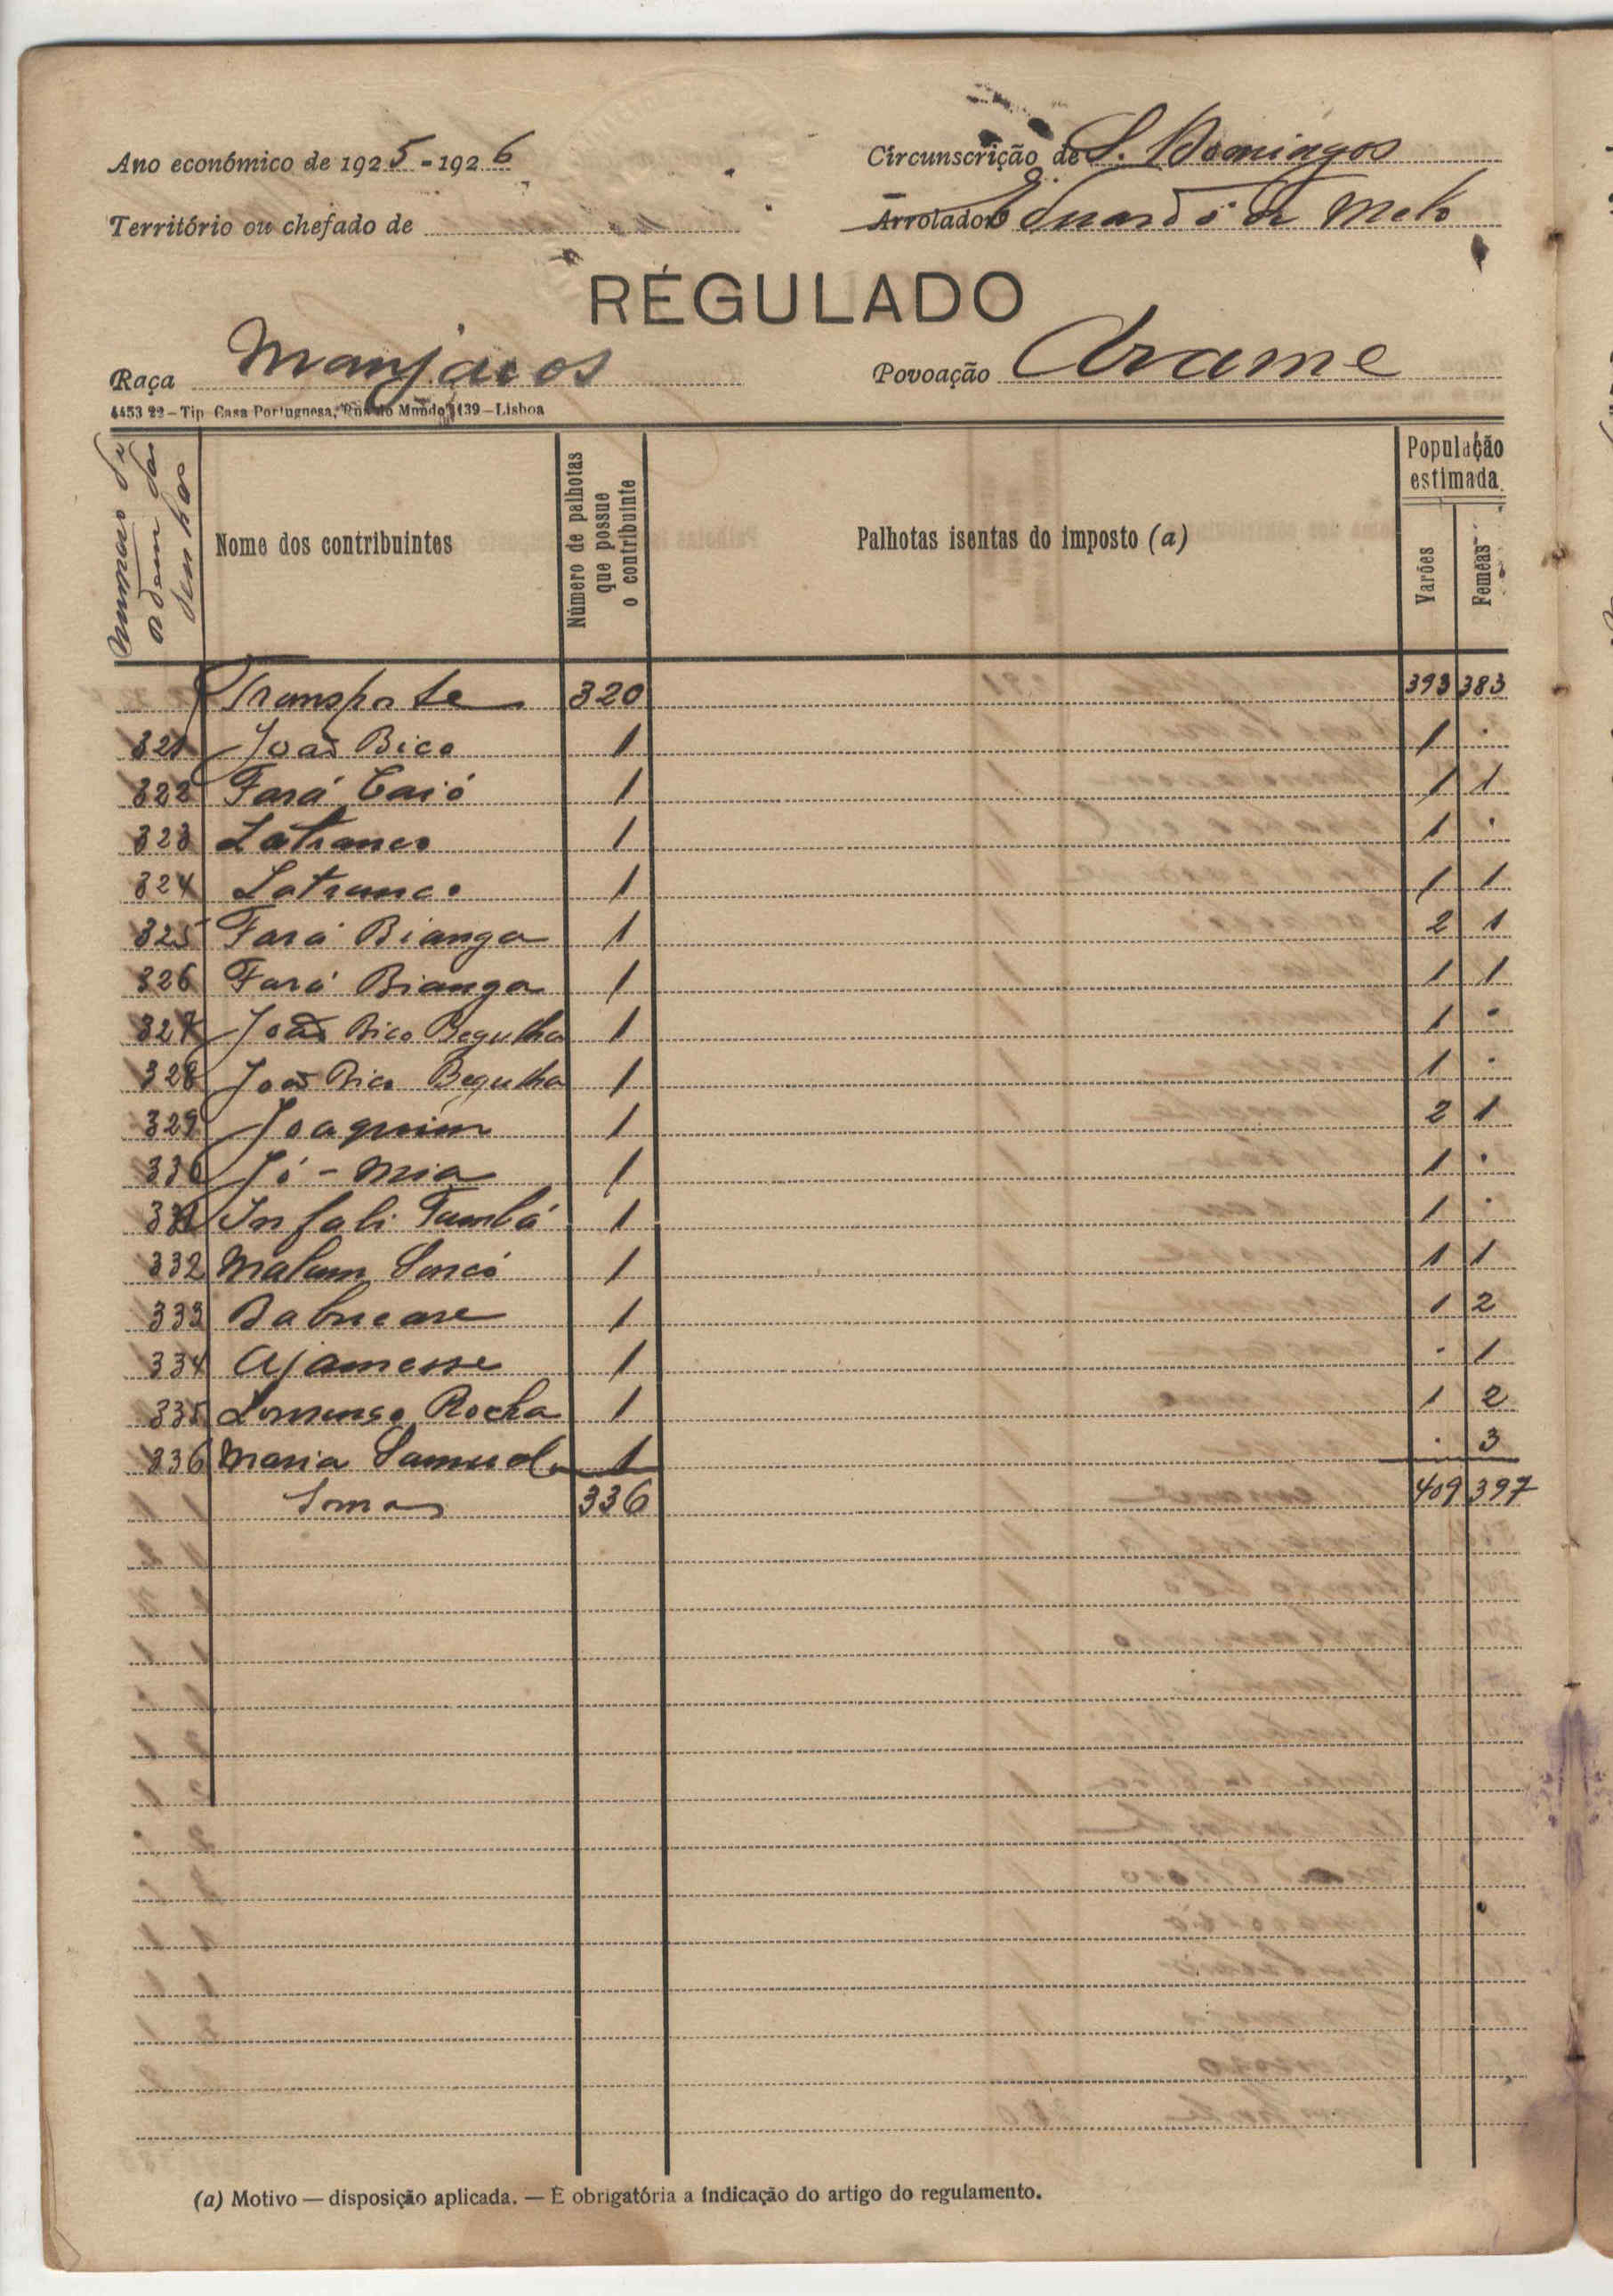 Ano económico de 1925-1926
Circunscrição de S. Domingos
Território ou chefado de
Arrolador Eduardo de Melo
RÉGULADO
Raça Manjacos
Povoação Arame
4453 22 – Tip. Casa Portuguesa, Rua do Mundo, 139 – Lisboa
Numeros de ordem das senhas
Nome dos contribuintes
Número de palhotas que possue o contribuinte
Palhotas isentas do imposto (a)
População estimada
Varões
Femeas
Transporte 320 393 383
321 João Bico 1 1 .
322 Fará Caió 1 1 1
323 Latranco 1 1 .
324 Latranco 1 1 1
325 Fará Bianga 1 2 1
326 Fará Bianga 1 1 1
327 João Bico Begulha 1 1 .
328 João Bico Begulha 1 1 .
329 Joaquim 1 2 1
330 Jó-Mia 1 1 .
331 Infali Tambá 1 1 .
332 Malam Soncó 1 1 1
333 1 1 2
334 Ajamesse 1 . 1
335 Lourenço Rocha 1 1 2
336 Maria Samuel 1 . 3
Soma 336 409 397
(a) Motivo — disposição aplicada. — É obrigatória a indicação do artigo do regulamento.